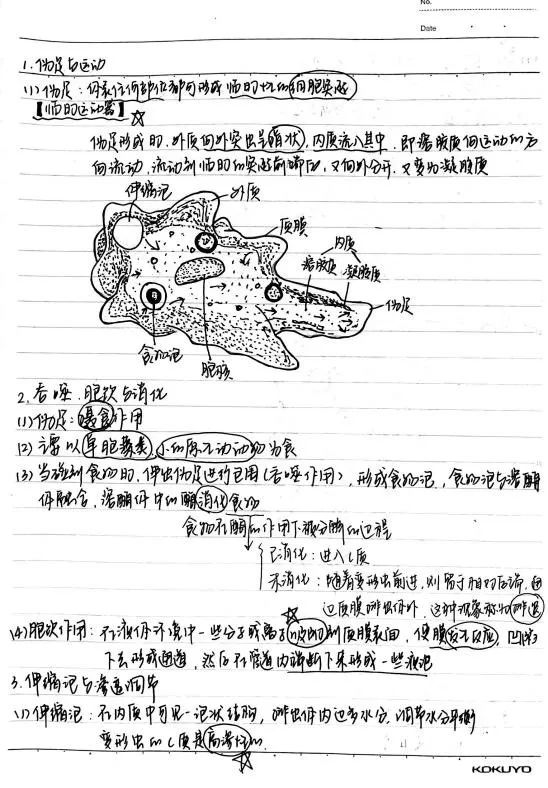 No.
Date
1. 伪足与运动
(1) 伪足：何东任何部位都可形成临时性的细胞突起
【临时运动器】
伪足形成时，外质向外突出呈指状，内质流入其中，即溶胶质向运动的方
向流动，流动到临时的突起前端后，又向外分开，又变为凝胶质
伸缩泡
外质
质膜
内质
溶胶质
凝胶质
伪足
食物泡
胞核
2. 吞噬、胞饮与消化
(1) 伪足：摄食作用
(2) 主要以单胞藻类、小的原生动物为食
(3) 当碰到食物时，伸出伪足进行包围（吞噬作用），形成食物泡，食物泡与溶酶
体融合，溶酶体中的酶消化食物
食物在酶的作用下被分解的过程
已消化：进入C质
未消化：随着变形虫前进，则留于相对后端，由
过质膜排出体外，这种现象称为排遗
(4) 胞饮作用：在液体环境中一些分子或离子吸附到质膜表面，使膜发生反应，凹陷
下去形成通道，然后在管道内端断下来形成一些液泡
3. 伸缩泡与渗透调节
(1) 伸缩泡：在内质中可见一泡状结构，排出体内过多水分，调节水分平衡
变形虫的C质是高渗性的
KOKUYO